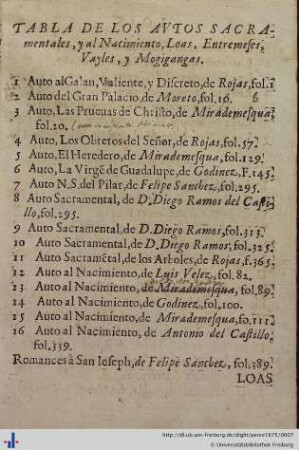 TABLA DE LOS AVTOS SACRA-
mentales, y al Nacimiento, Loas, Entremeses,
Vayles, y Mogigangas.
1 Auto al Galan, Valiente, y Discreto, de Rojas, fol.1
2 Auto del Gran Palacio, de Moreto, fol.16.
3 Auto, Las Pruevas de Christo, de Mirademesqua,
fol.20.
4 Auto, Los Obreros del Señor, de Rojas, fol.57.
5 Auto, El Heredero, de Mirademesqua, fol.129.
6 Auto, La Virgē de Guadalupe, de Godinez, F.145.
7 Auto N.S. del Pilar, de Felipe Sanchez, fol.295.
8 Auto Sacramental, de D. Diego Ramos del Casti-
llo, fol.295.
9 Auto Sacramental, de D. Diego Ramos, fol.313.
10 Auto Sacramental, de D. Diego Ramos, fol.325.
11 Auto Sacramētal, de los Arboles, de Rojas, f.365.
12 Auto al Nacimiento, de Luis Velez, fol.82.
13 Auto al Nacimiento, de Mirademesqua, fol.89.
14 Auto al Nacimiento, de Godinez, fol.100.
15 Auto al Nacimiento, de Mirademesqua, fo.111.
16 Auto al Nacimiento, de Antonio del Castillo,
fol.339.
Romances à San Ioseph, de Felipe Sanchez, fol.389.
LOAS
http://dl.ub.uni-freiburg.de/diglit/perez1675/0007
© Universitätsbibliothek Freiburg